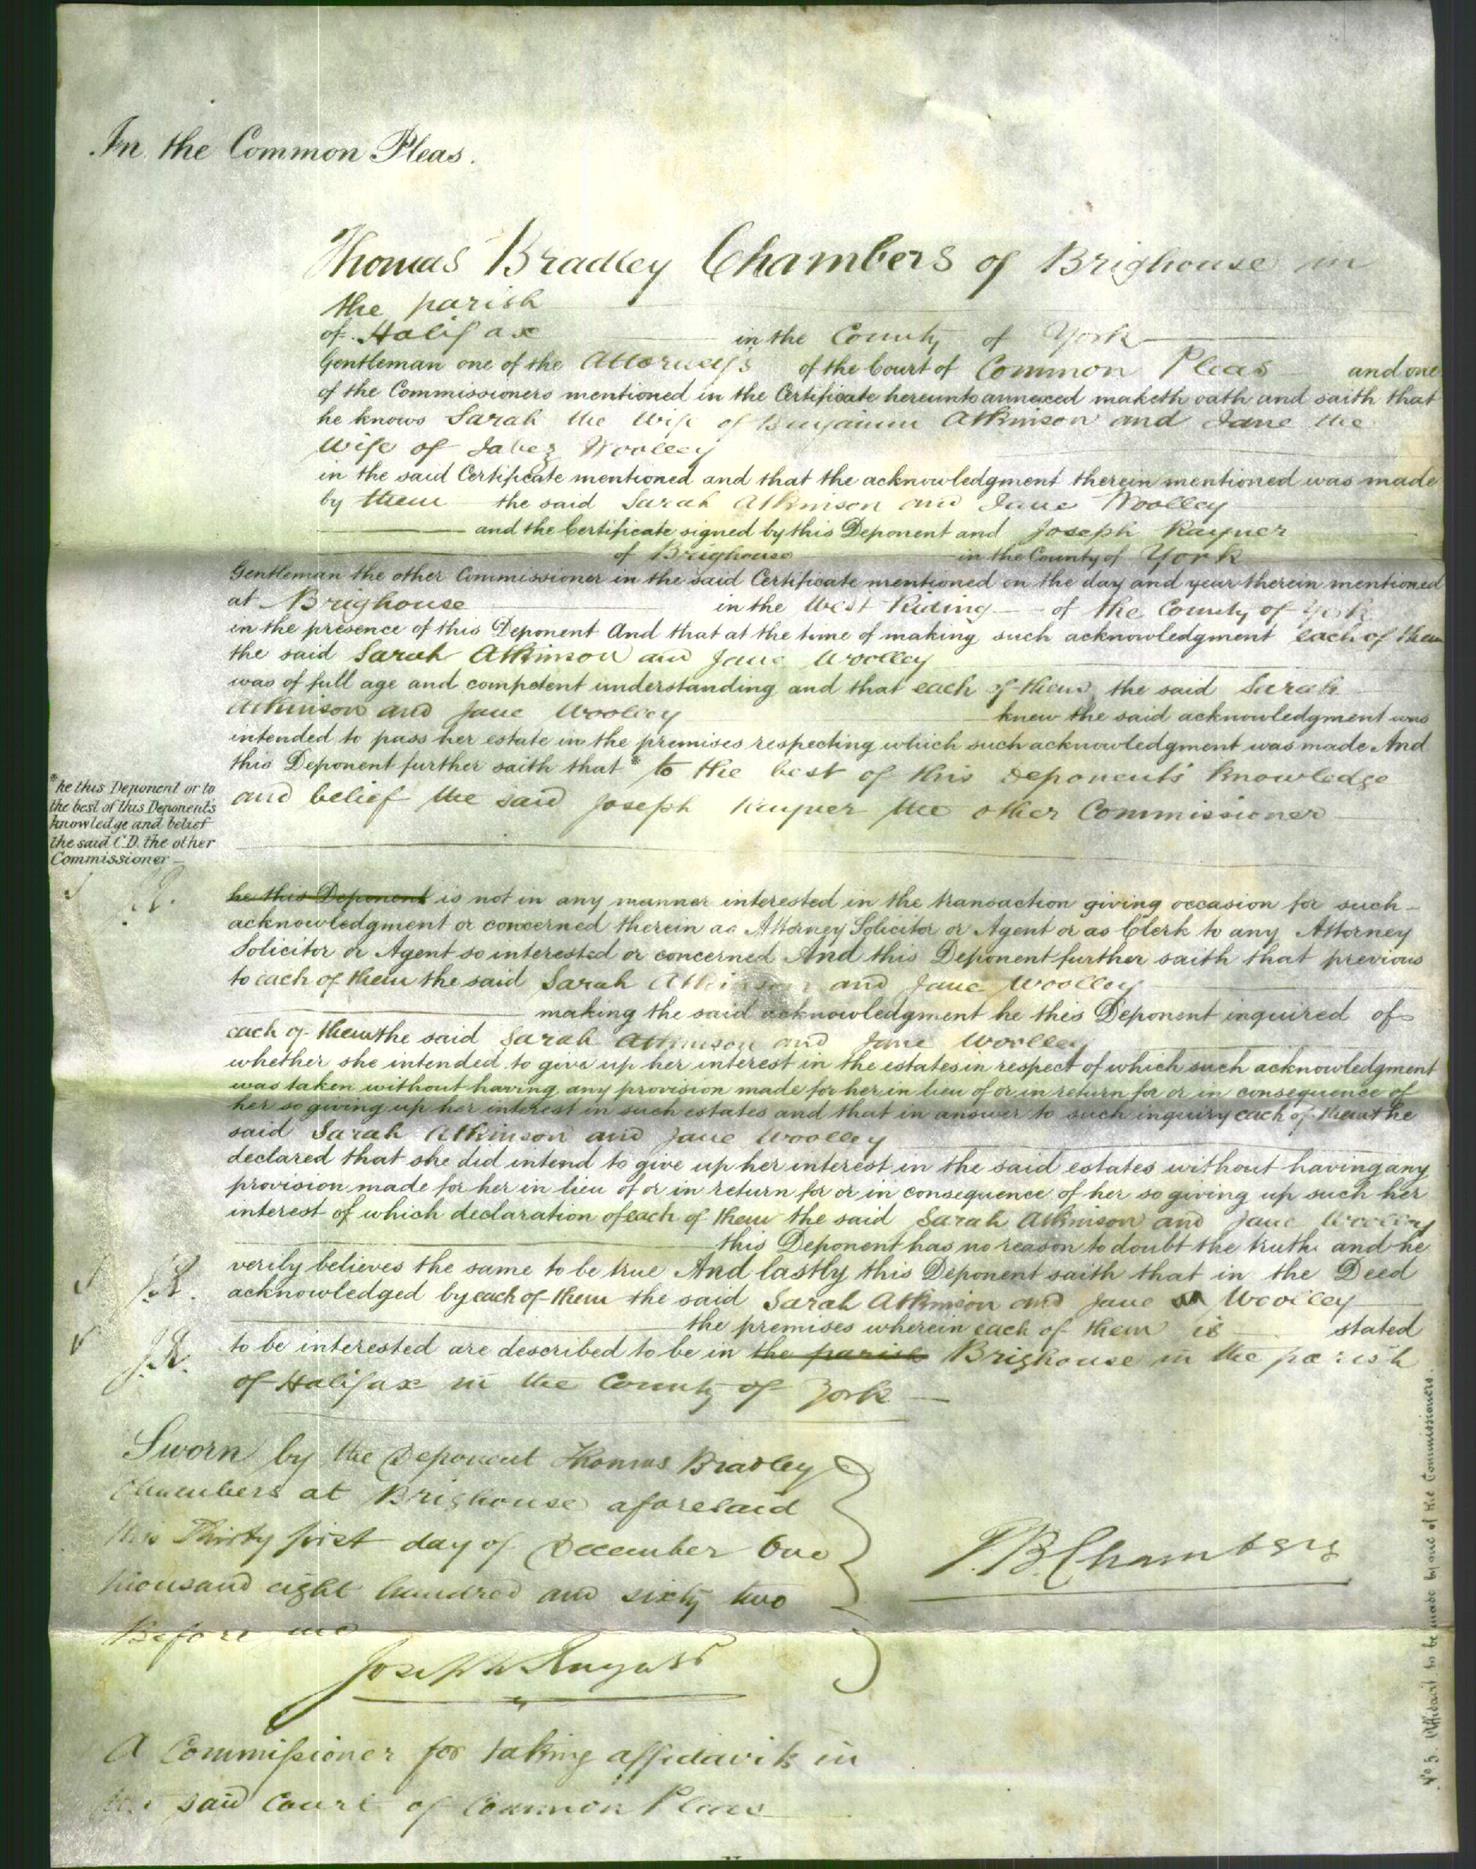 In the Common Pleas.
Thomas Bradley Chambers of Brighouse in
the parish
of Halifax in the County of York
Gentleman one of the Attorneys of the Court of Common Pleas and one
of the Commissioners mentioned in the Certificate hereunto annexed maketh oath and saith that
he knows Sarah the Wife of Benjamin Atkinson and Jane the
Wife of Jabez Woolley
in the said Certificate mentioned and that the acknowledgment therein mentioned was made
by them the said Sarah Atkinson and Jane Woolley
and the Certificate signed by this Deponent and Joseph Rayner
of Brighouse in the County of York
Gentleman the other Commissioner in the said Certificate mentioned on the day and year therein mentioned
at Brighouse in the West Riding of the County of York
in the presence of this Deponent And that at the time of making such acknowledgment each of them
the said Sarah Atkinson and Jane Woolley
was of full age and competent understanding and that each of them the said Sarah
Atkinson and Jane Woolley knew the said acknowledgment was
intended to pass her estate in the premises respecting which such acknowledgment was made And
this Deponent further saith that * to the best of this Deponents knowledge
and belief the said Joseph Rayner the other Commissioner
* he this Deponent or to
the best of this Deponents
knowledge and belief
the said C.D. the other
Commissioner
he this Deponent is not in any manner interested in the transaction giving occasion for such
acknowledgment or concerned therein as Attorney Solicitor or Agent or as Clerk to any Attorney
Solicitor or Agent so interested or concerned And this Deponent further saith that previous
to each of them the said Sarah Atkinson and Jane Woolley
making the said acknowledgment he this Deponent inquired of
each of them the said Sarah Atkinson and Jane Woolley
whether she intended to give up her interest in the estates in respect of which such acknowledgment
was taken without having any provision made for her in lieu of or in return for or in consequence of
her so giving up her interest in such estates and that in answer to such inquiry each of them the
said Sarah Atkinson and Jane Woolley
declared that she did intend to give up her interest in the said estates without having any
provision made for her in lieu of or in return for or in consequence of her so giving up such her
interest of which declaration of each of them the said Sarah Atkinson and Jane Woolley
this Deponent has no reason to doubt the truth and he
verily believes the same to be true And lastly this Deponent saith that in the Deed
J.R. acknowledged by each of them the said Sarah Atkinson and Jane Woolley
the premises wherein each of them is stated
J.R. to be interested are described to be in the parish Brighouse in the parish
of Halifax in the County of York
Sworn by the Deponent Thomas Bradley
Chambers at Brighouse aforesaid
this Thirty first day of December One
thousand eight hundred and sixty two
Before me
T.B. Chambers
Joseph Rayner
A Commissioner for taking affidavits in
the said Court of Common Pleas
No 3. Affidavit to be made by one of the Commissioners.